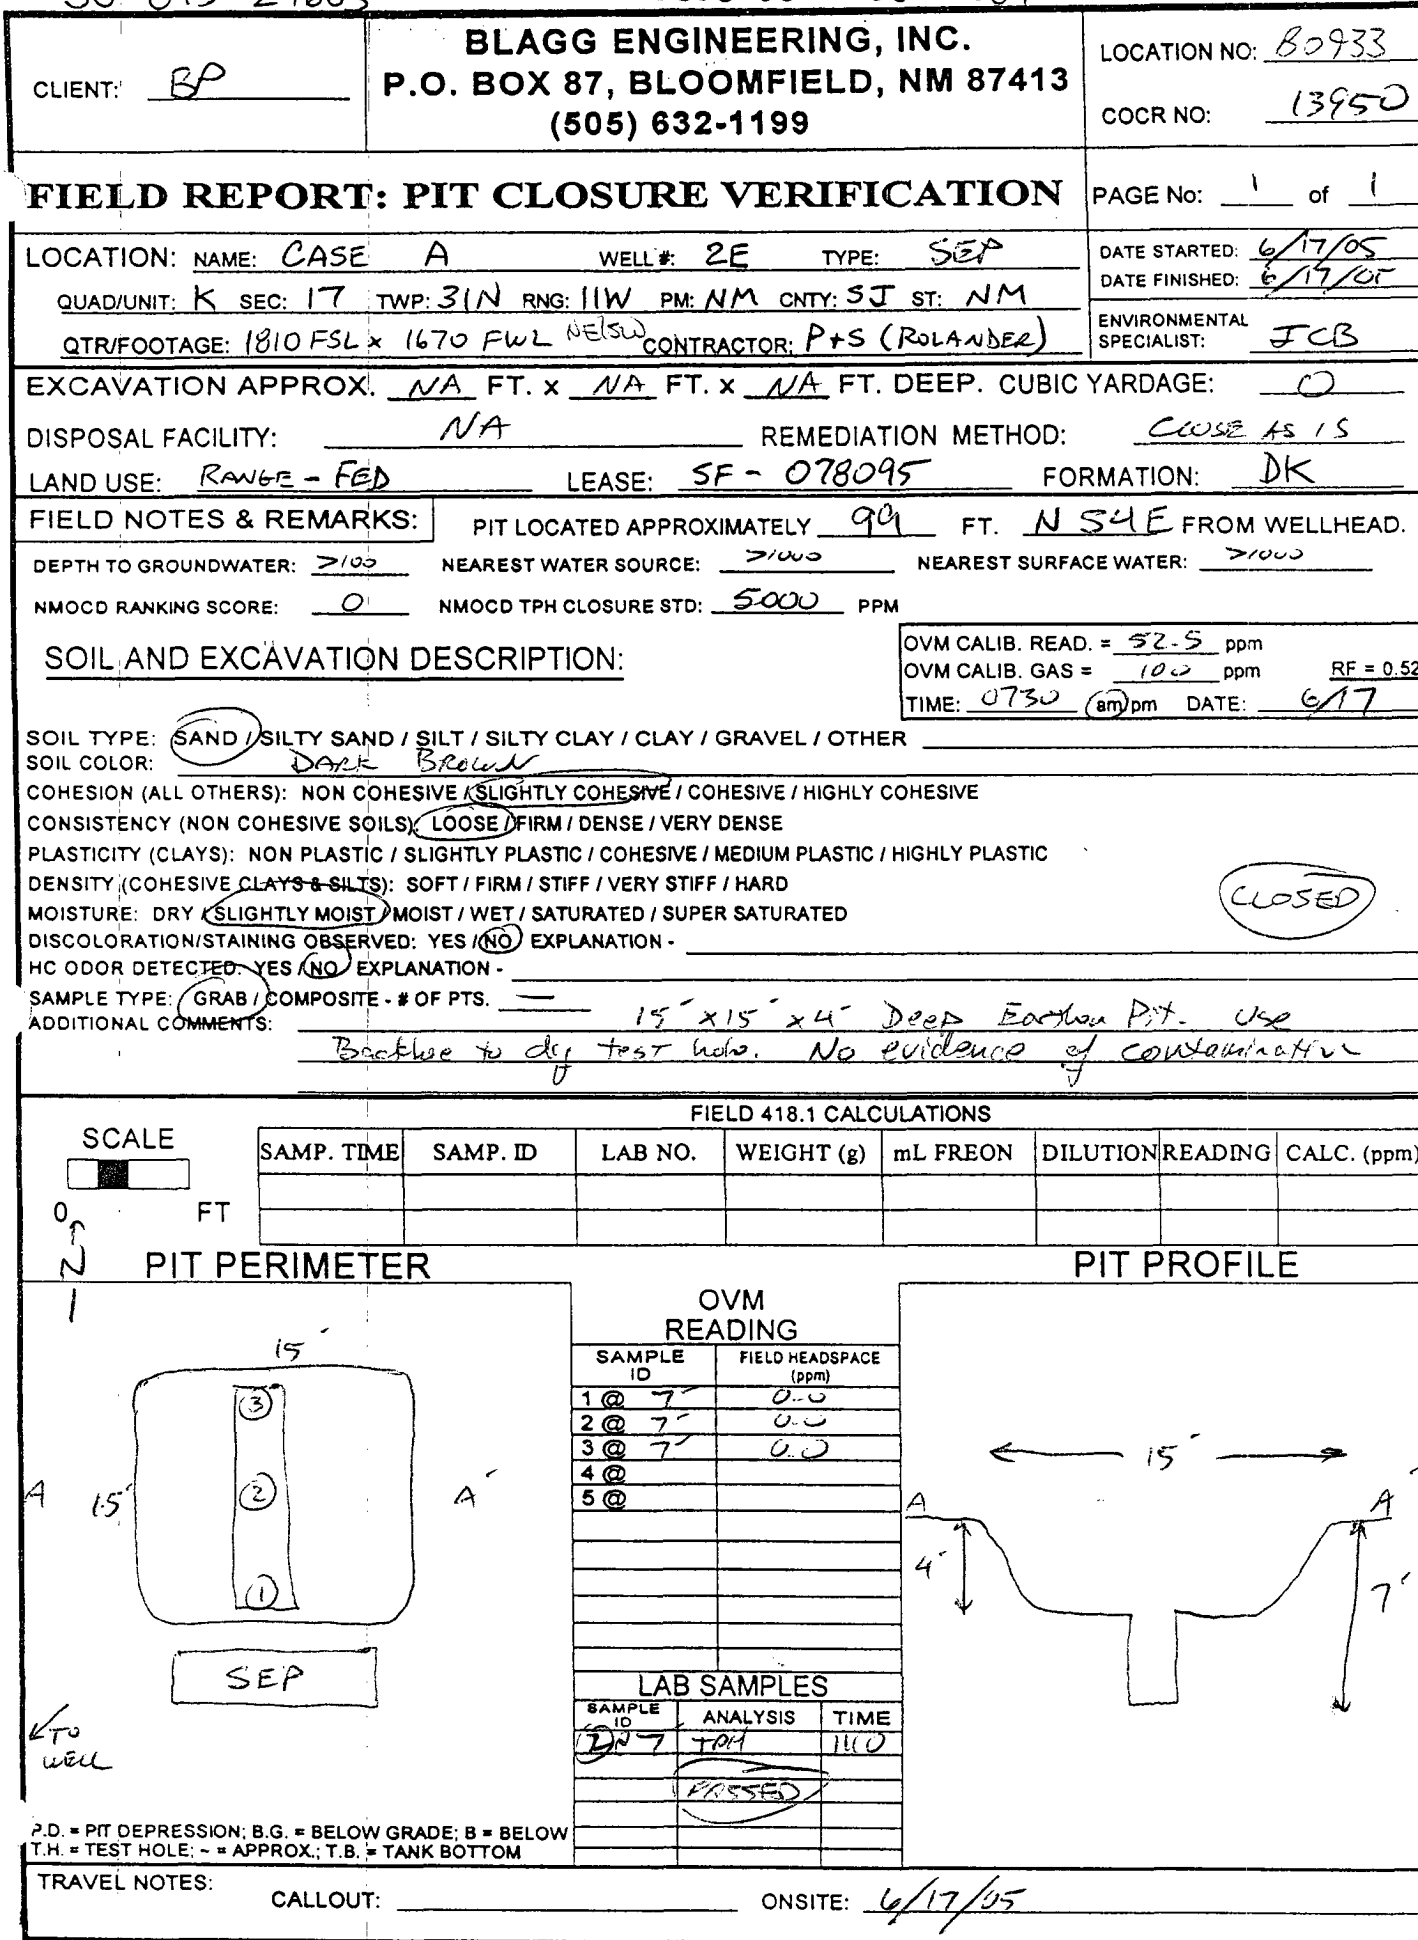 BLAGG ENGINEERING, INC.
P.O. BOX 87, BLOOMFIELD, NM 87413
(505) 632-1199
CLIENT: BP
LOCATION NO: B0933
COCR NO: 13950
FIELD REPORT: PIT CLOSURE VERIFICATION
PAGE No: 1 of 1
LOCATION: NAME: CASE A WELL #: 2E TYPE: SEP
DATE STARTED: 6/17/05
DATE FINISHED: 6/17/05
QUAD/UNIT: K SEC: 17 TWP: 31N RNG: 11W PM: NM CNTY: SJ ST: NM
QTR/FOOTAGE: 1810 FSL x 1670 FWL NE/SW CONTRACTOR: P+S (ROLANDER)
ENVIRONMENTAL SPECIALIST: JCB
EXCAVATION APPROX. NA FT. x NA FT. x NA FT. DEEP. CUBIC YARDAGE: 0
DISPOSAL FACILITY: NA REMEDIATION METHOD: CLOSE AS IS
LAND USE: RANGE - FED LEASE: SF - 078095 FORMATION: DK
FIELD NOTES & REMARKS: PIT LOCATED APPROXIMATELY 99 FT. N 54 E FROM WELLHEAD.
DEPTH TO GROUNDWATER: >100 NEAREST WATER SOURCE: >1000 NEAREST SURFACE WATER: >1000
NMOCD RANKING SCORE: 0 NMOCD TPH CLOSURE STD: 5000 PPM
SOIL AND EXCAVATION DESCRIPTION:
OVM CALIB. READ. = 52.5 ppm
OVM CALIB. GAS = 100 ppm RF = 0.52
TIME: 0730 am/pm DATE: 6/17
SOIL TYPE: SAND / SILTY SAND / SILT / SILTY CLAY / CLAY / GRAVEL / OTHER
SOIL COLOR: DARK BROWN
COHESION (ALL OTHERS): NON COHESIVE / SLIGHTLY COHESIVE / COHESIVE / HIGHLY COHESIVE
CONSISTENCY (NON COHESIVE SOILS): LOOSE / FIRM / DENSE / VERY DENSE
PLASTICITY (CLAYS): NON PLASTIC / SLIGHTLY PLASTIC / COHESIVE / MEDIUM PLASTIC / HIGHLY PLASTIC
DENSITY (COHESIVE CLAYS & SILTS): SOFT / FIRM / STIFF / VERY STIFF / HARD
MOISTURE: DRY / SLIGHTLY MOIST / MOIST / WET / SATURATED / SUPER SATURATED
CLOSED
DISCOLORATION/STAINING OBSERVED: YES / NO EXPLANATION -
HC ODOR DETECTED: YES / NO EXPLANATION -
SAMPLE TYPE: GRAB / COMPOSITE - # OF PTS. —
ADDITIONAL COMMENTS: 15' x 15' x 4' Deep Earthen Pit. Use
Backhoe to dig test hole. No evidence of contamination
FIELD 418.1 CALCULATIONS
SCALE
0 FT
SAMP. TIME SAMP. ID LAB NO. WEIGHT (g) mL FREON DILUTION READING CALC. (ppm)
N
PIT PERIMETER
PIT PROFILE
OVM
READING
SAMPLE ID FIELD HEADSPACE (ppm)
1 @ 7' 0.0
2 @ 7' 0.0
3 @ 7' 0.0
4 @
5 @
15'
3
2
1
A 15' A'
SEP
TO
WELL
15'
A A'
4'
7'
LAB SAMPLES
SAMPLE ID ANALYSIS TIME
2@7' TPH 1110
PASSED
P.D. = PIT DEPRESSION; B.G. = BELOW GRADE; B = BELOW
T.H. = TEST HOLE; ~ = APPROX.; T.B. = TANK BOTTOM
TRAVEL NOTES:
CALLOUT: ONSITE: 6/17/05